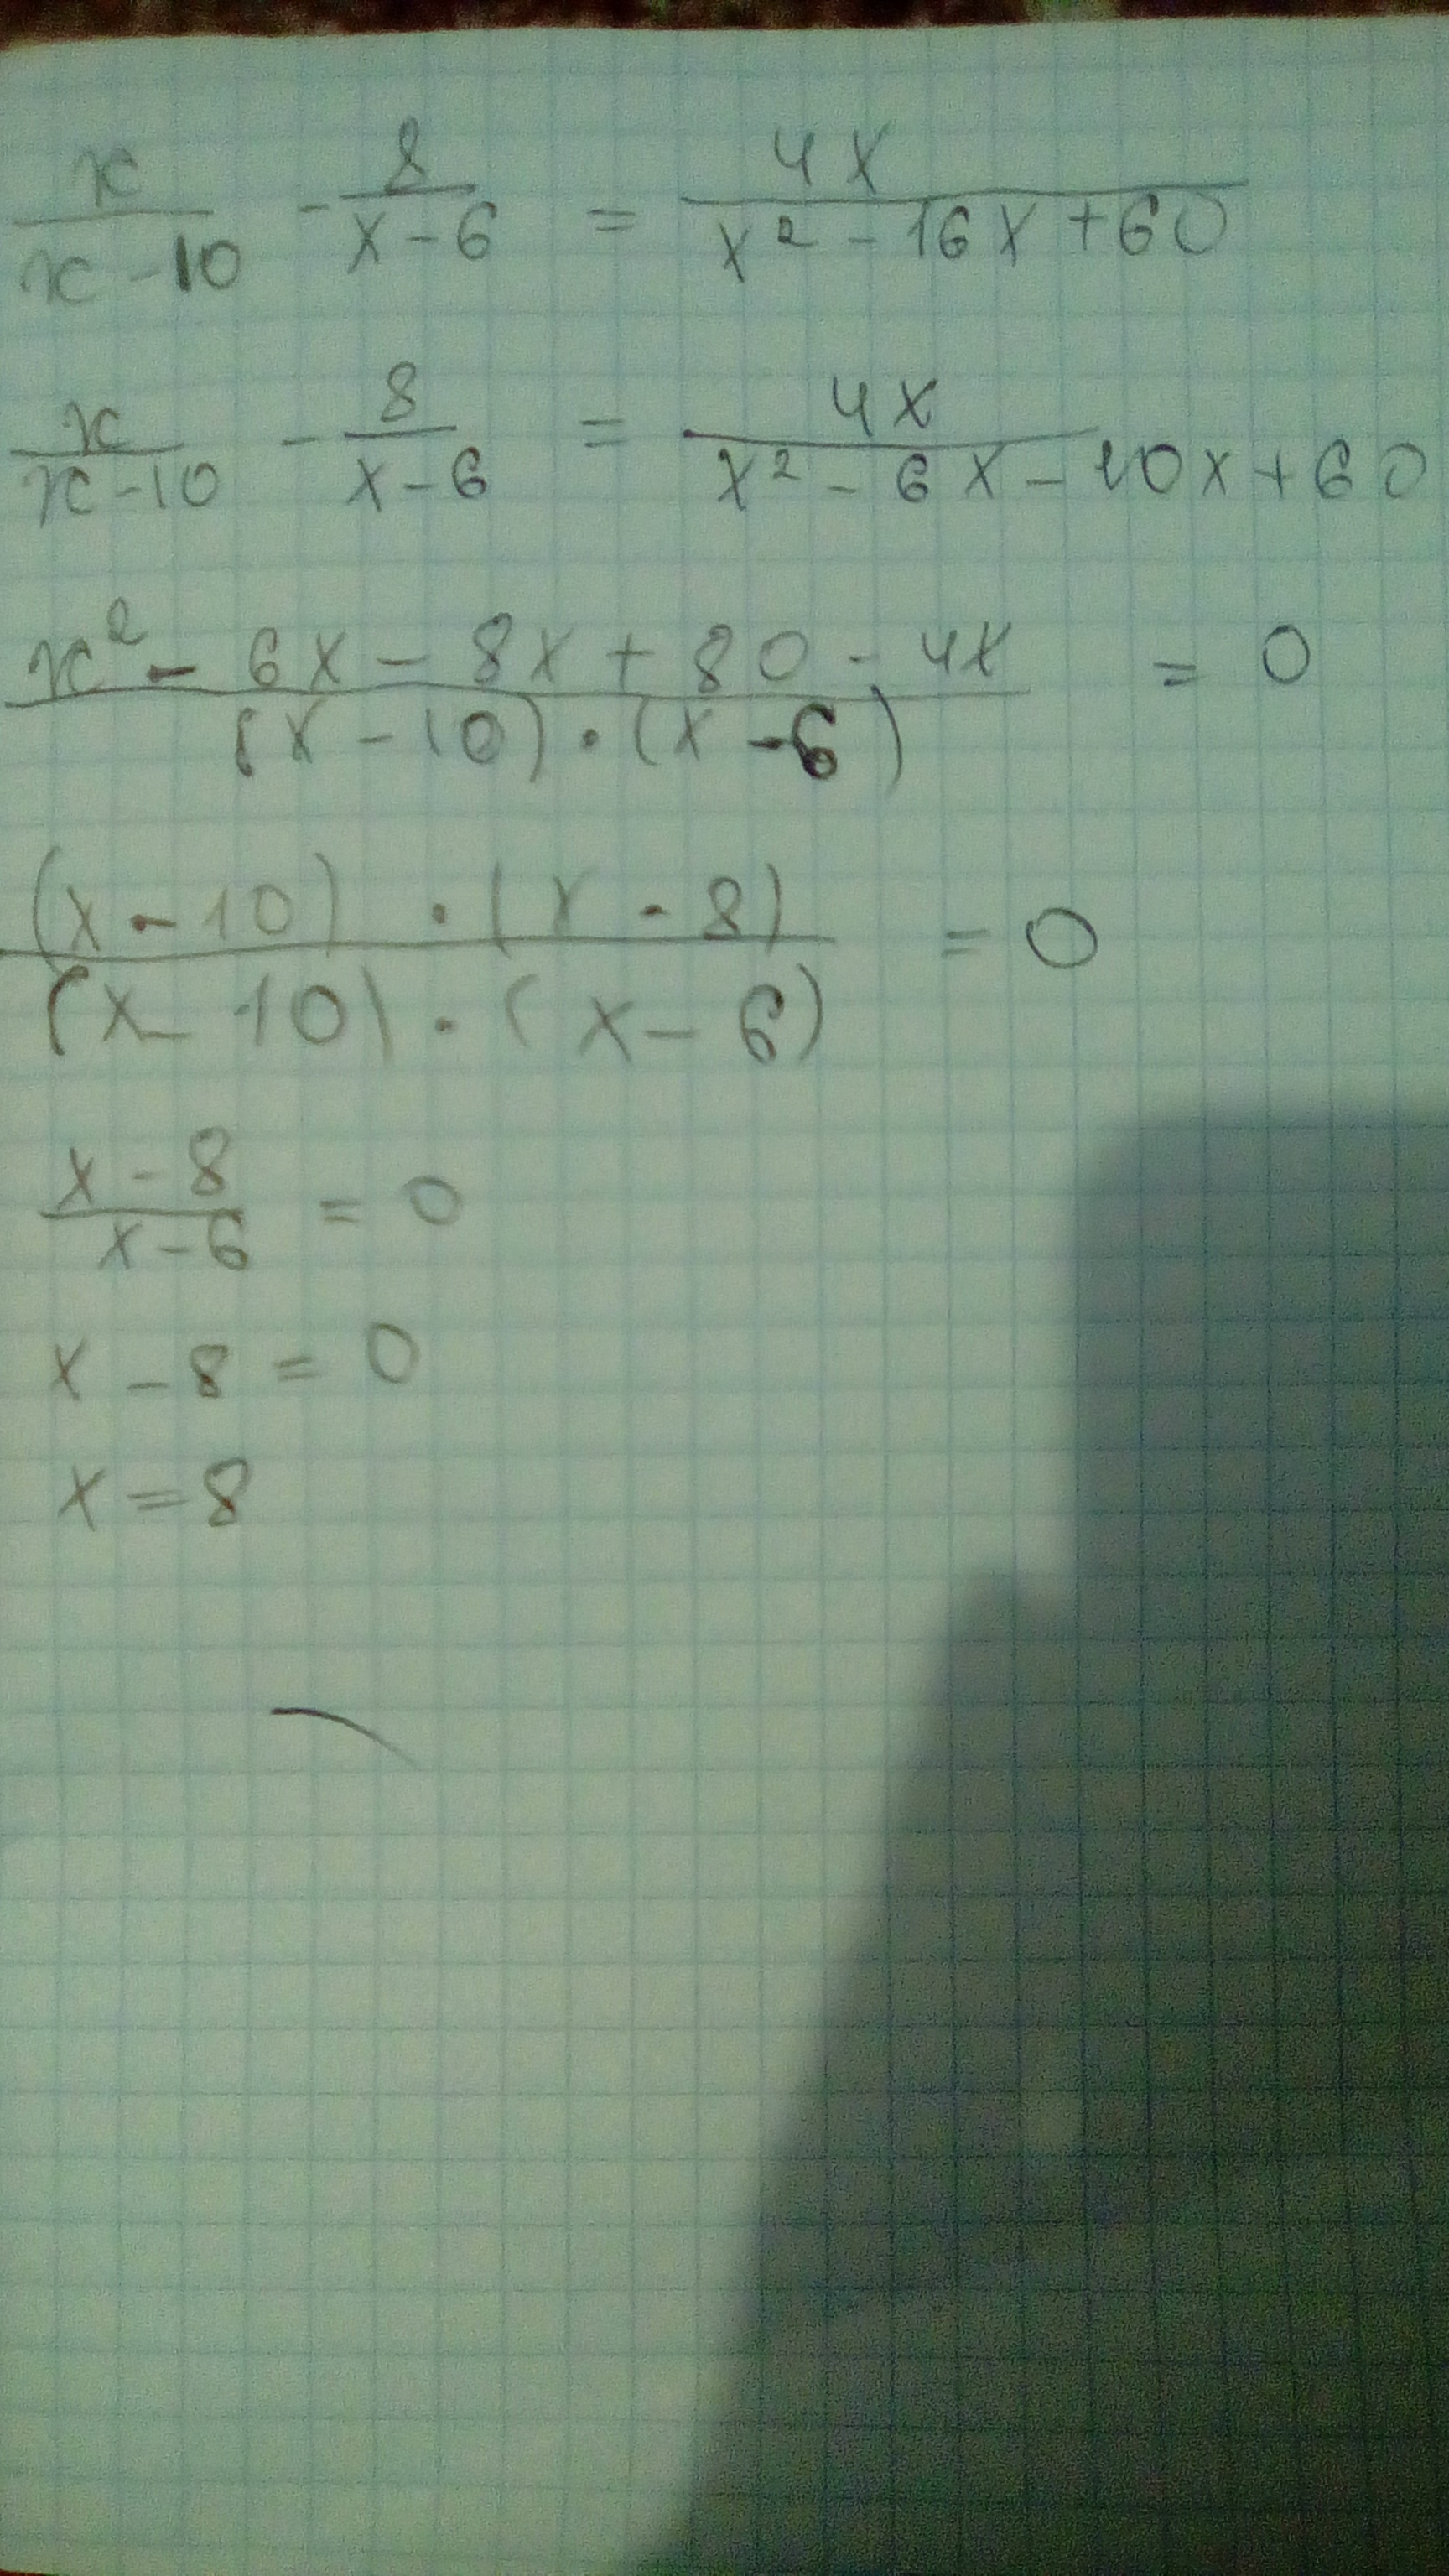 x/(x-10) - 8/(x-6) = 4x/(x²-16x+60)
x/(x-10) - 8/(x-6) = 4x/(x²-6x-10x+60)
(x²-6x-8x+80-4x)/((x-10)·(x-6)) = 0
((x-10)·(x-8))/((x-10)·(x-6)) = 0
(x-8)/(x-6) = 0
x-8=0
x=8